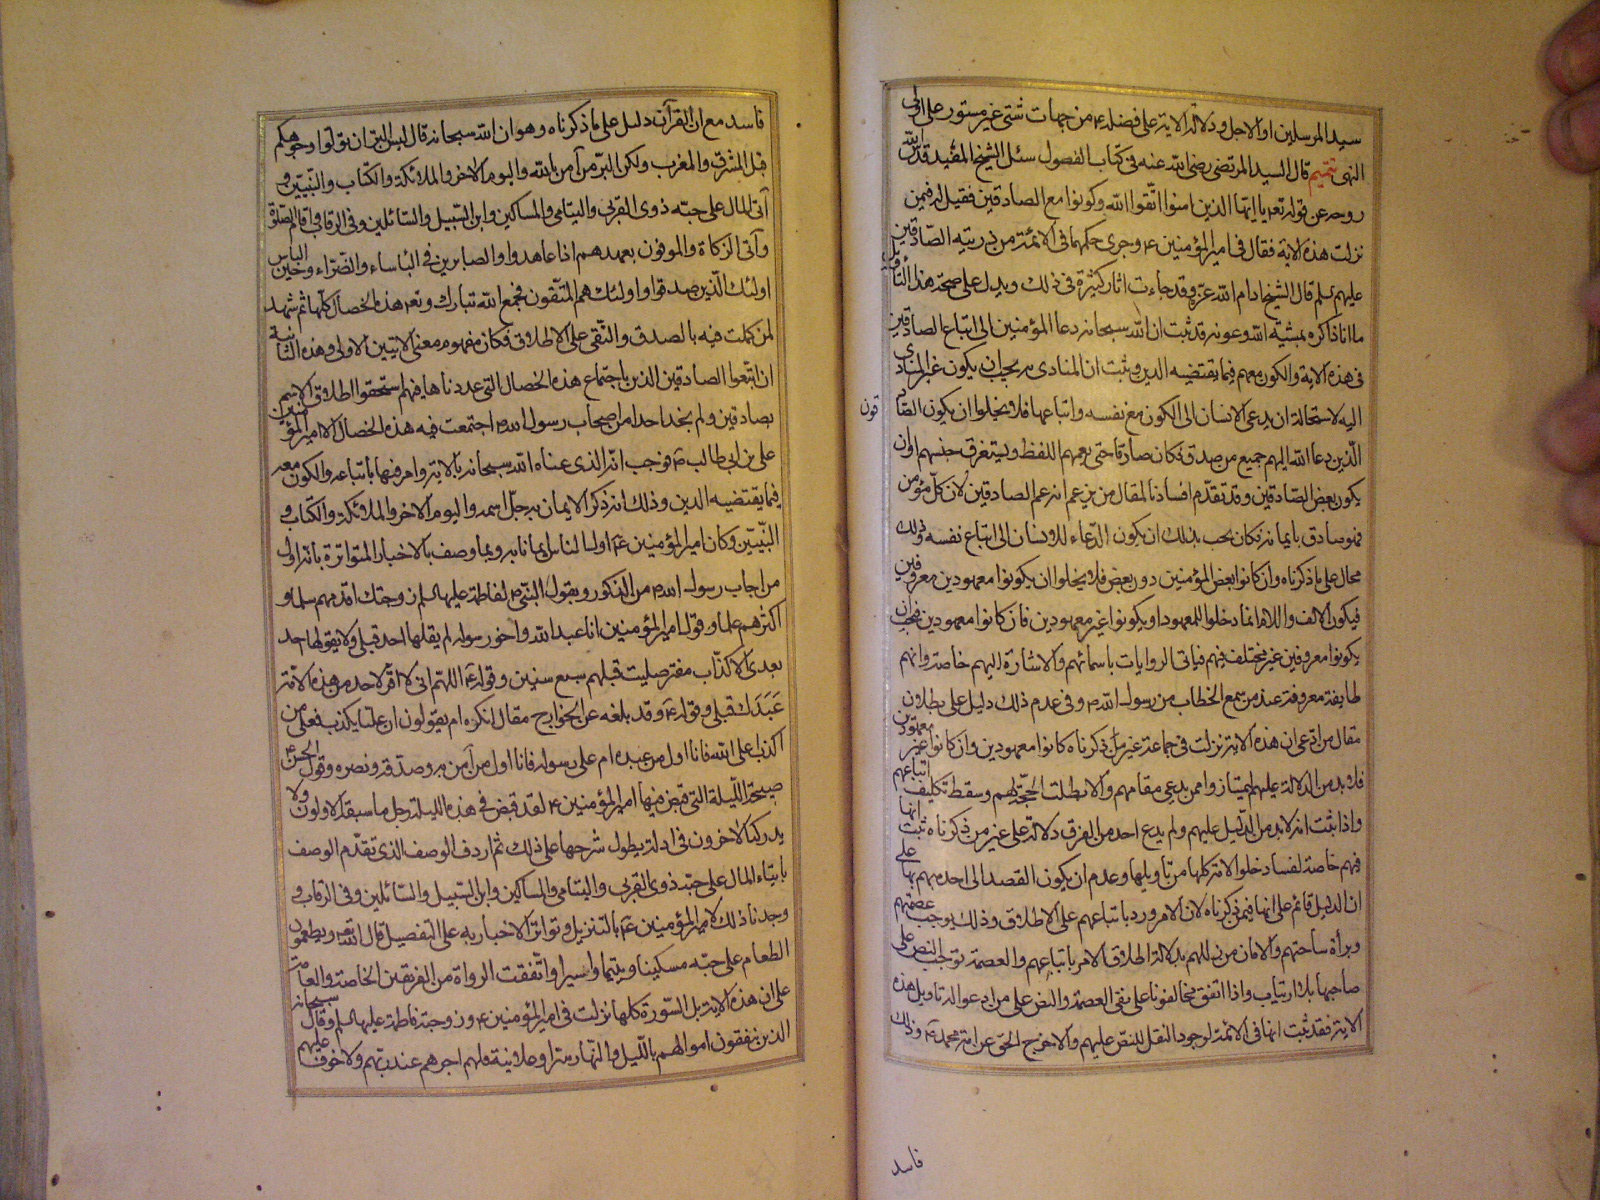 سيد المرسلين او الاجل ودلالة الاية على فضله ع من جهات شتى غير مستور على اولى
النهى تتميم قال السيد المرتضى رضى الله عنه فى كتاب الفصول سئل الشيخ المفيد قدس الله
روحه عن قوله تع يا ايها الذين امنوا اتقوا الله وكونوا مع الصادقين فقيل له فيمن
نزلت هذه الاية فقال فى امير المؤمنين ع وجرى حكمها فى الائمة من ذريته الصادقين
عليهم السلم قال الشيخ ادام الله عزه وقد جاءت اثار كثيرة فى ذلك ويدل على صحة هذا التاويل
ما انا ذاكره بمشية الله وعونه قد ثبت ان الله سبحانه دعا المؤمنين الى اتباع الصادقين
فى هذه الاية والكون معهم فيما يقتضيه الدين وثبت ان المنادى به يجب ان يكون غير المنادى
اليه لاستحالة ان يدعى الانسان الى الكون مع نفسه واتباعها فلا يخلوا ان يكون الصاد
قون
الذين دعا الله اليهم جميع من صدق وكان صادقا حتى يعمهم اللفظ ويستغرق جنسهم او ان
يكون بعض الصادقين وقد تقدم افسادنا لمقال من يزعم انه عم الصادقين لان كل مؤمن
فهو صادق بايمانه فكان يجب بذلك ان يكون الدعاء للانسان الى اتباع نفسه وذلك
محال على ما ذكرناه وان كانوا بعض المؤمنين دون بعض فلا يخلوا ان يكونوا معهودين معروفين
فيكون الالف واللام انما دخلوا للمعهود او يكونوا غير معهودين فان كانوا معهودين فيجب ان
يكونوا معروفين غير مختلف فيهم فياتى الروايات باسمائهم والاشارة اليهم خاصة وانهم
طايفة معروفة عند من سمع الخطاب من رسول الله ص وفى عدم ذلك دليل على بطلان
مقال من ادعى ان هذه الاية نزلت فى جماعة غير من ذكرناه كانوا معهودين وان كانوا غير معهودين
فلا بد من الدلالة عليهم ليمتازوا ممن يدعى مقامهم والا بطلت الحجة لهم وسقط تكليف اتباعهم
واذا ثبت انه لا بد من الدليل عليهم ولم يدع احد من الفرق دلالة على غير من ذكرناه ثبت انها
فيهم خاصة لفساد خلو الامة كلها من تاويلها وعدم ان يكون القصد الى احد منهم بها على
ان الدليل قائم على انها فيمن ذكرناه لان الامر ورد باتباعهم على الاطلاق وذلك يوجب عصمتهم
وبراة ساحتهم والامان من زللهم بدلالة اطلاق الامر باتباعهم والعصمة توجب النص على
صاحبها بلا ارتياب واذا اتفق مخالفونا على نفى العصمة والنص على من ادعوا له تاويل هذه
الاية فقد ثبت انها فى الائمة لوجود النقل للنص عليهم والا خرج الحق عن امة محمد ص وذلك
فاسد
فاسد مع ان القرآن دليل على ما ذكرناه وهو ان الله سبحانه قال ليس البر ان تولوا وجوهكم
قبل المشرق والمغرب ولكن البر من آمن بالله واليوم الاخر والملائكة والكتاب والنبيين و
آتى المال على حبه ذوى القربى واليتامى والمساكين وابن السبيل والسائلين وفى الرقاب واقام الصلوة
وآتى الزكاة والموفون بعهدهم اذا عاهدوا والصابرين فى الباساء والضراء وحين الباس
اولئك الذين صدقوا واولئك هم المتقون فجمع الله تبارك وتع هذه الخصال كلها ثم شهد
لمن كملت فيه بالصدق والتقى على الاطلاق فكان مفهوم معنى الايتين الاولى وهذه الثانية
ان اتبعوا الصادقين الذين باجتماع هذه الخصال التى عددناها فيهم استحقوا اطلاق الاسم
بصادقين ولم نجد احدا من اصحاب رسول الله ص اجتمعت فيه هذه الخصال الا امير المؤمنين
على بن ابى طالب ع فوجب انه الذى عناه الله سبحانه بالاية وامر فيها باتباعه والكون معه
فيما يقتضيه الدين وذلك انه ذكر الايمان به جل اسمه واليوم الاخر والملائكة والكتاب و
النبيين وكان امير المؤمنين ع اول الناس ايمانا به وبما وصف بالاخبار المتواترة بانه اول
من اجاب رسول الله ص من الذكور وبقول النبى ص لفاطمة عليها السلم زوجتك اقدمهم سلما و
اكثرهم علما وقول امير المؤمنين انا عبد الله واخو رسوله لم يقلها احد قبلى ولا يقولها احد
بعدى الا كذاب مفتر صليت قبلهم سبع سنين وقوله ع اللهم انى لا اقر لاحد من هذه الامة
عبدك قبلى وقوله ع وقد بلغه عن الخوارج مقال انكره ام يقولون ان عليا يكذب فعلى من
اكذب اعلى الله فانا اول من عبده ام على رسوله فانا اول من آمن به وصدقه ونصره وقول الحسن ع
صبيحة الليلة التى قبض فيها امير المؤمنين ع لقد قبض فى هذه الليلة رجل ما سبقه الاولون ولا
يدركه الاخرون فى ادلة يطول شرحها على ذلك ثم اردف الوصف الذى تقدم الوصف
بايتاء المال على حبه ذوى القربى واليتامى والمساكين وابن السبيل والسائلين وفى الرقاب و
وجدنا ذلك لامير المؤمنين ع بالتنزيل وتواتر الاخبار به على التفصيل قال الله تع ويطعمون
الطعام على حبه مسكينا ويتيما واسيرا واتفقت الرواة من الفريقين الخاصة والعامة
على ان هذه الاية بل السورة كلها نزلت فى امير المؤمنين ع وزوجته فاطمة عليها السلم وقال سبحانه
الذين ينفقون اموالهم بالليل والنهار سرا وعلانية فلهم اجرهم عند ربهم ولا خوف عليهم